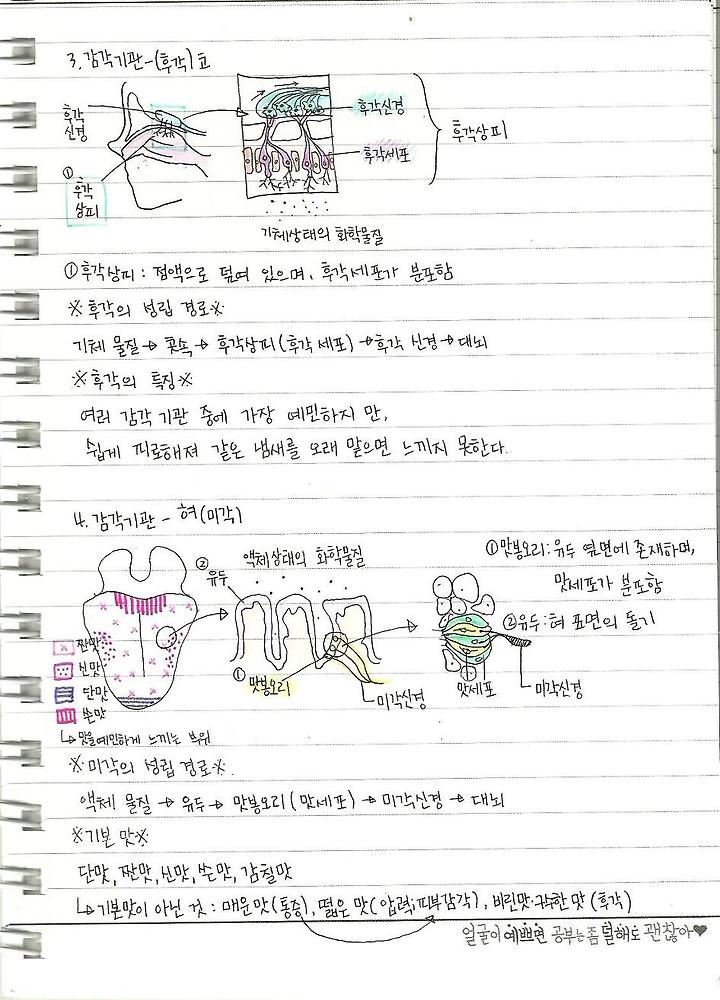 3. 감각기관-(후각)코
후각
신경
①
후각
상피
후각신경
후각세포
후각상피
기체상태의 화학물질
①후각상피 : 점액으로 덮여 있으며, 후각세포가 분포함
※후각의 성립 경로※
기체 물질→콧속→후각상피(후각 세포)→후각 신경→대뇌
※후각의 특징※
여러 감각 기관 중에 가장 예민하지 만,
쉽게 피로해져 같은 냄새를 오래 맡으면 느끼지 못한다.
4. 감각기관 - 혀(미각)
짠맛
신맛
단맛
쓴맛
↳맛을 예민하게 느끼는 부위
②
유두
액체상태의 화학물질
①
맛봉오리
미각신경
①맛봉오리:유두 옆면에 존재하며,
맛세포가 분포함
②유두:혀 표면의 돌기
맛세포
미각신경
※미각의 성립 경로※.
액체 물질→유두→맛봉오리(맛세포)→미각신경→대뇌
※기본 맛※
단맛, 짠맛, 신맛, 쓴맛, 감칠맛
↳기본맛이 아닌 것 : 매운맛(통증), 떫은 맛(압력;피부감각), 비린맛·구수한 맛 (후각)
얼굴이 예쁘면 공부는 좀 덜해도 괜찮아♥